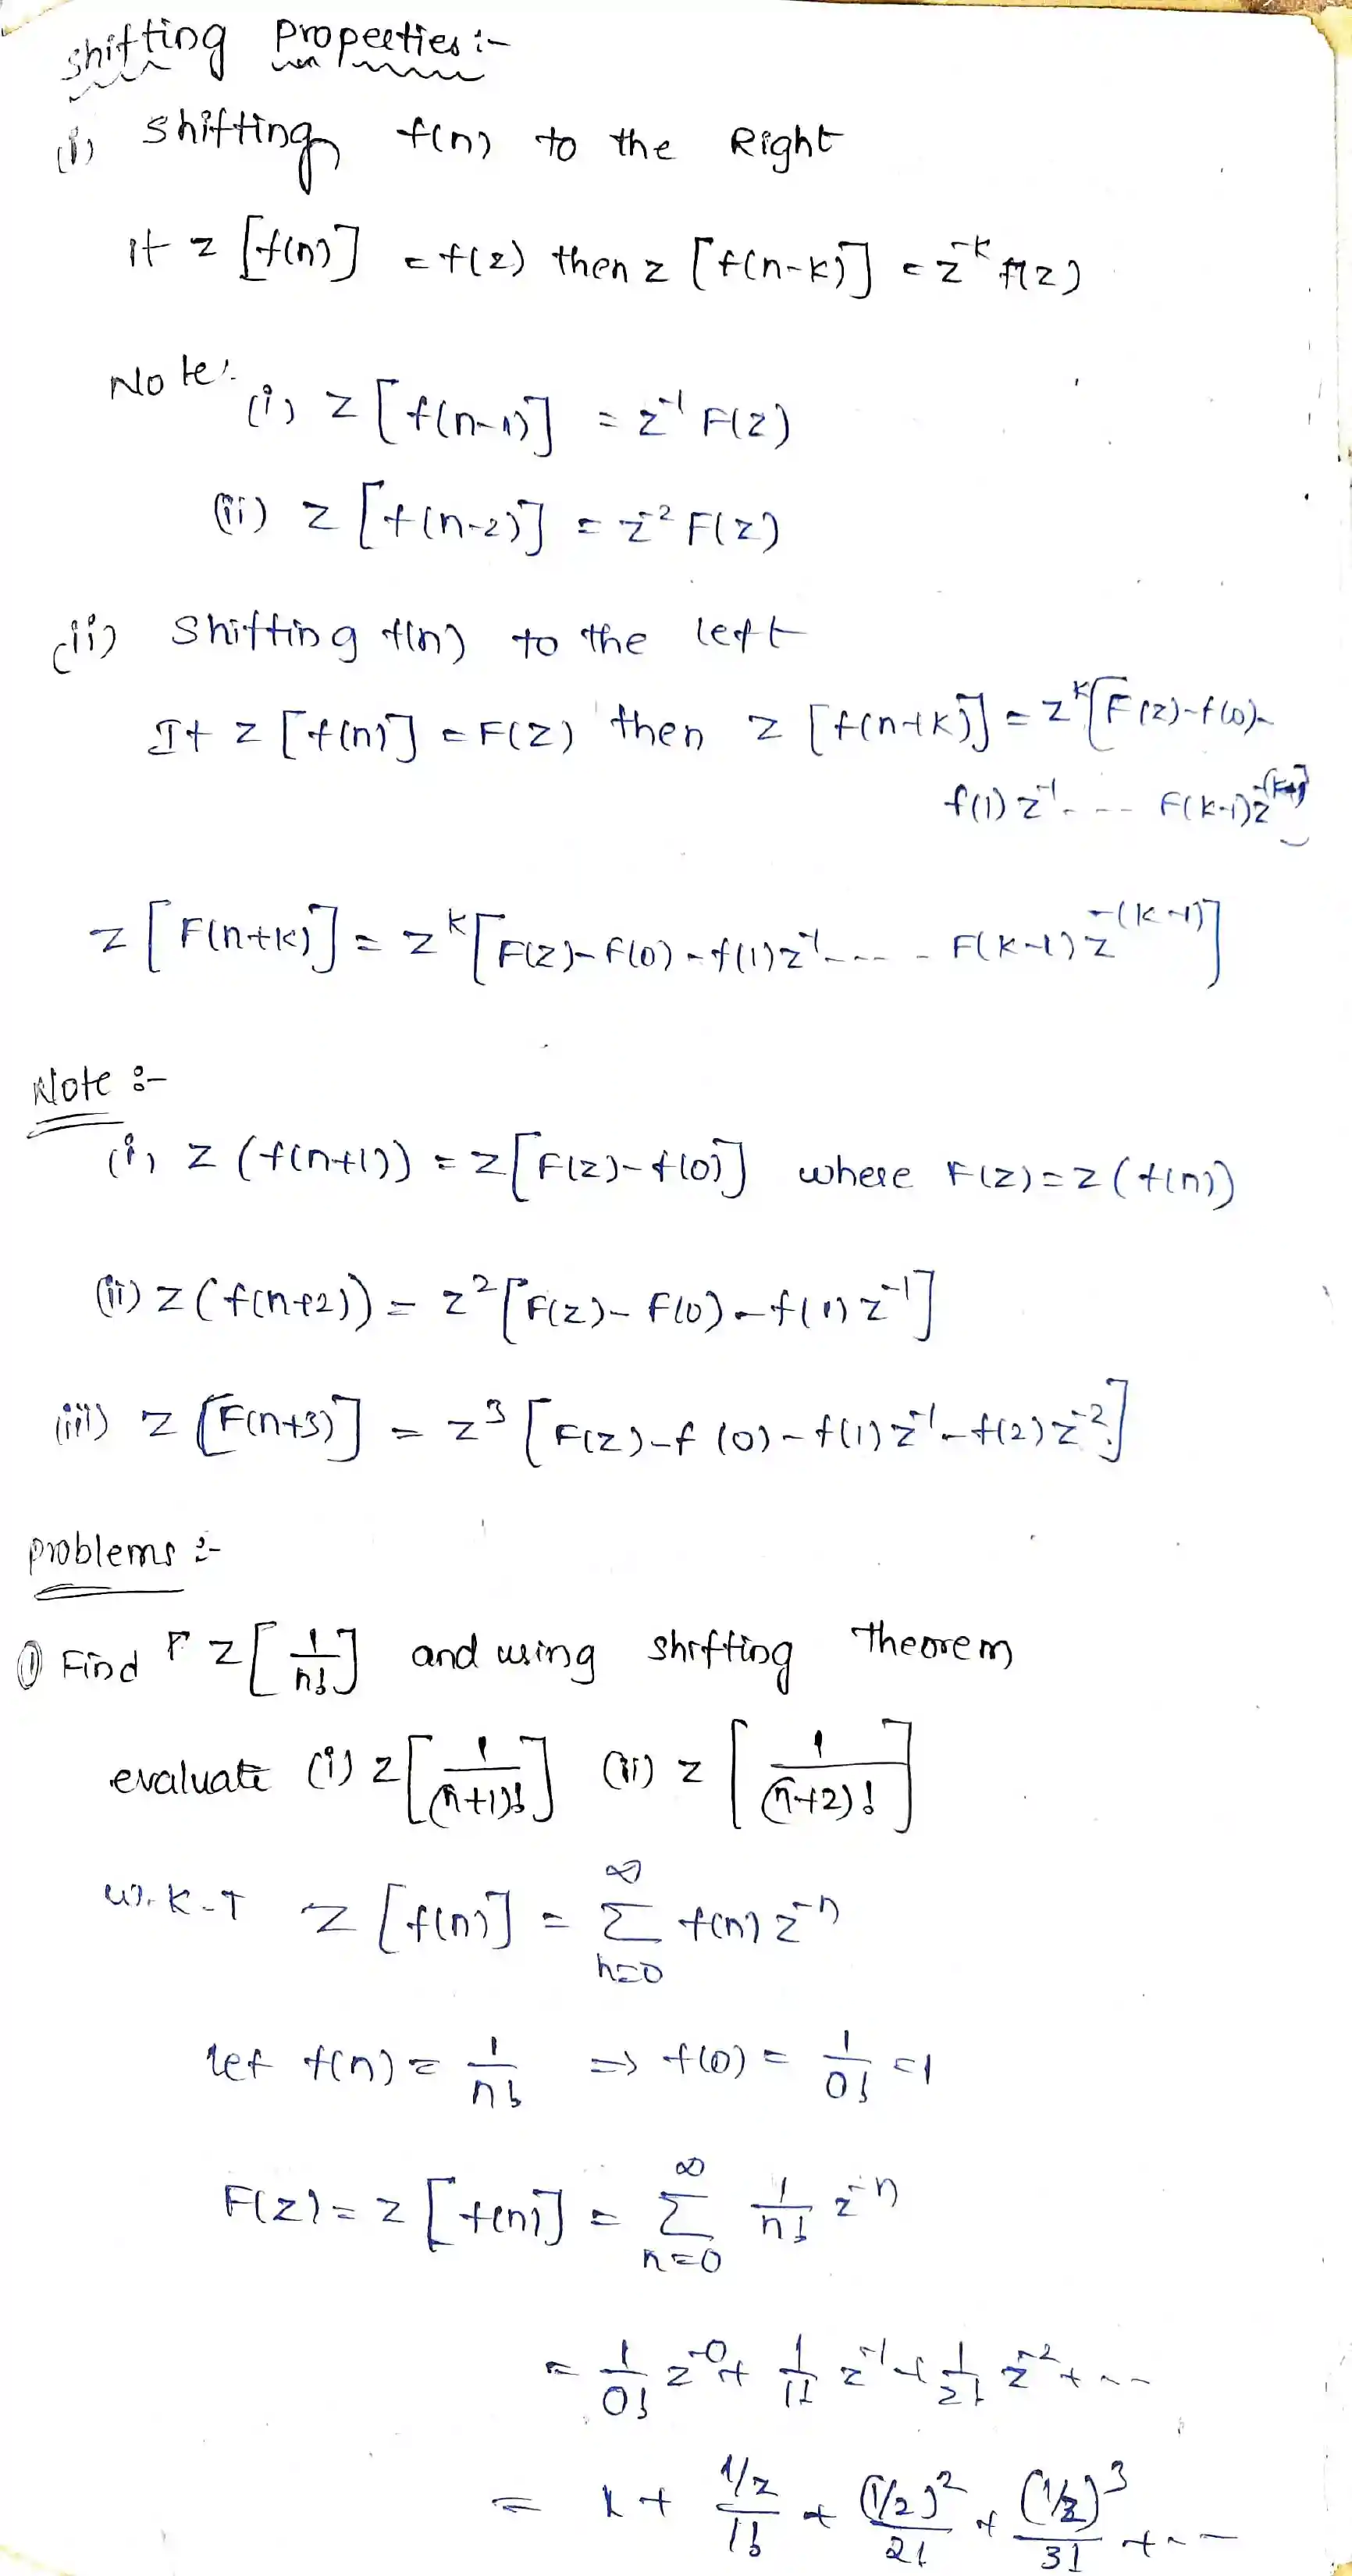 Shifting Properties :-
(i) Shifting f(n) to the Right
If z [f(n)] = f(z) then z [f(n-k)] = z^-k f(z)
Note:
(i) z [f(n-1)] = z^-1 F(z)
(ii) z [f(n-2)] = z^-2 F(z)
(ii) Shifting f(n) to the left
If z [f(n)] = F(z) then z [f(n+k)] = z^k [F(z)-f(0)-
f(1) z^-1 - - - F(k-1) z^-(k-1)]
z [F(n+k)] = z^k [F(z)-f(0)-f(1)z^-1 - - - - F(k-1) z^-(k-1)]
Note :-
(i) z (f(n+1)) = z [F(z)-f(0)] where F(z) = z (f(n))
(ii) z (f(n+2)) = z^2 [F(z)-F(0)-f(1) z^-1]
(iii) z [F(n+3)] = z^3 [F(z)-f(0)-f(1) z^-1-f(2) z^-2]
problems :-
① Find z [1/n!] and using shifting theorem
evaluate (i) z [1/(n+1)!] (ii) z [1/(n+2)!]
W.K.T z [f(n)] = ∞ Σ n=0 f(n) z^-n
let f(n) = 1/n! => f(0) = 1/0! = 1
F(z) = z [f(n)] = ∞ Σ n=0 1/n! z^-n
= 1/0! z^-0 + 1/1! z^-1 + 1/2! z^-2 + - -
= 1 + (1/z)/1! + (1/z)^2/2! + (1/z)^3/3! + - -